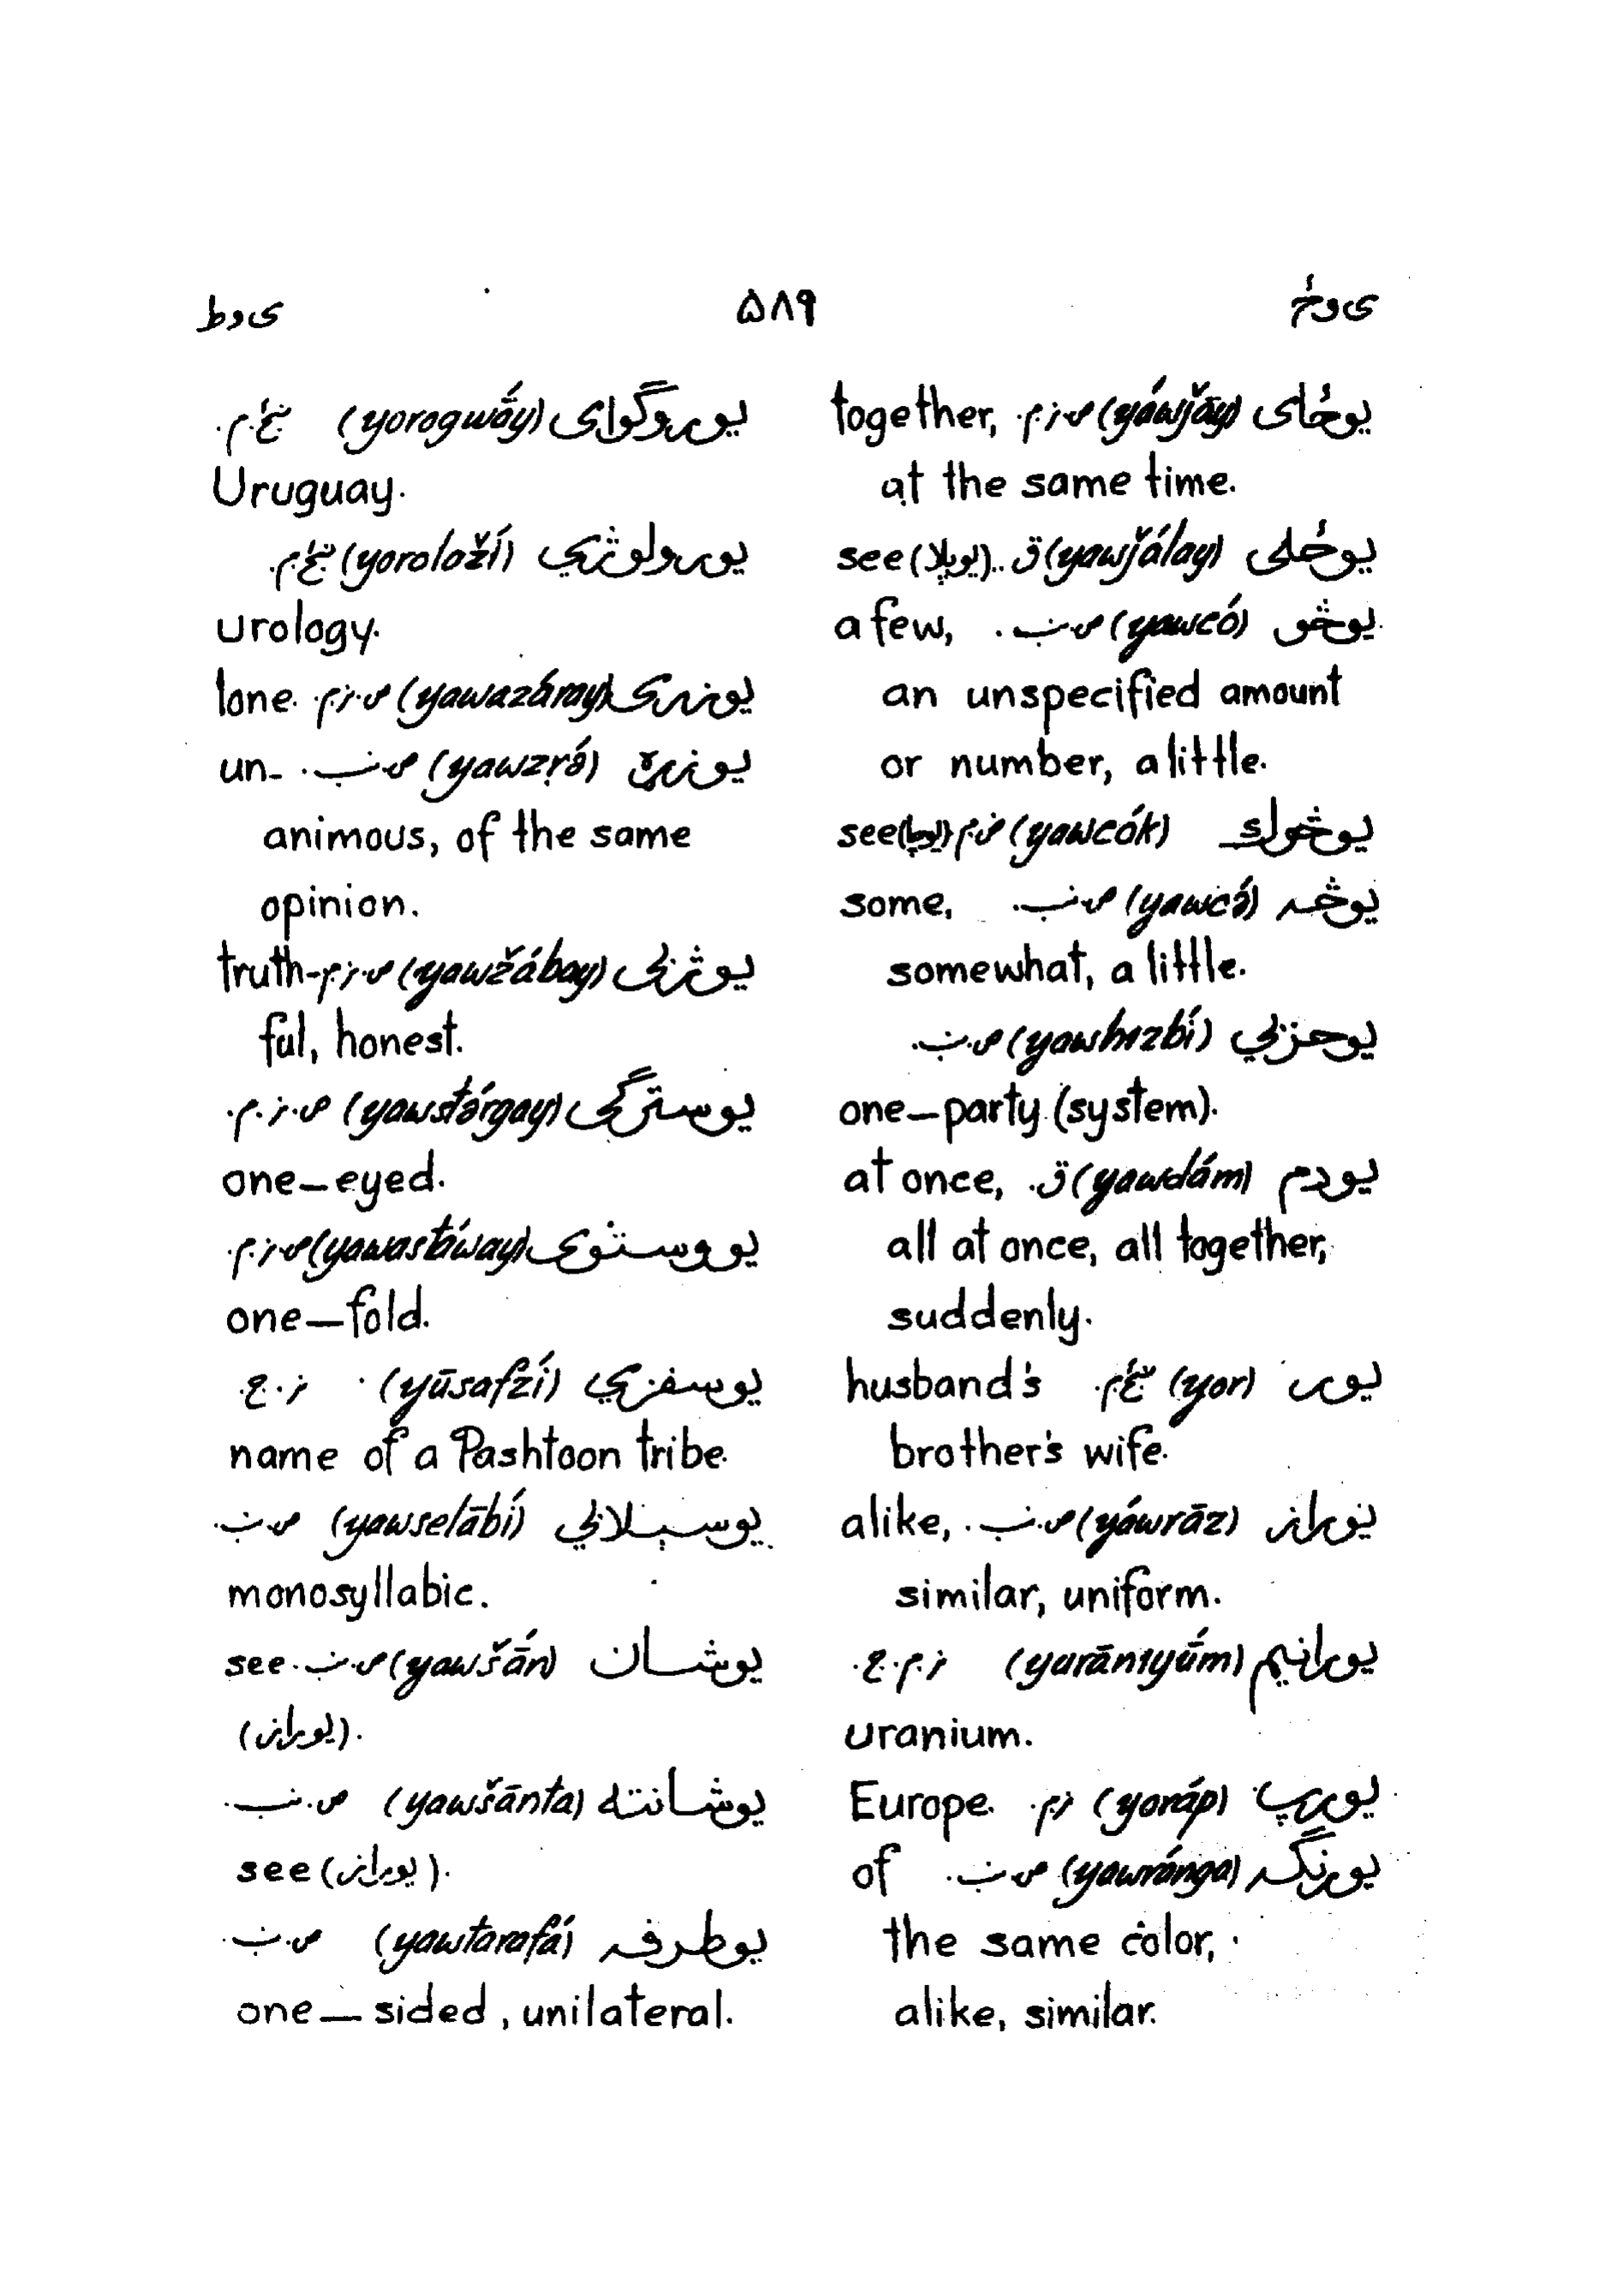 ی و ځ ۵۸۹ ی و ط
یوځای (yáwǰāy) ص ز.م. together,
at the same time.
یوځلی (yawǰálay) ق.. see (یوپلا)
یوڅو (yawcó) ص.ن.ب. a few,
an unspecified amount
or number, a little.
یوڅوک (yawcók) ض.م. see
یوڅه (yawcə́) ص.ن.ب. some,
somewhat, a little.
یوحزبي (yawhɪzbí) ص.ن.ب.
one—party (system).
یودم (yawdám) ق. at once,
all at once, all together,
suddenly.
یور (yor) husband's
brother's wife.
یوراز (yáwrāz) ص.ن.ب. alike,
similar, uniform.
یورانیم (yurānɪyúm) ز.م.ج.
uranium.
یورپ (yoráp) ز.م. Europe.
یورنګه (yawránga) ص.ن.ب. of
the same color,
alike, similar.
یوروګوای (yorogwā́y)
Uruguay.
یورولوژي (yoroloží)
urology.
یوزری (yawazə́ray) ص.ز.م. lone.
یوزړه (yawzṛə́) ص.ن.ب. un-
animous, of the same
opinion.
یوژبی (yawžə́bay) ص.ز.م. truth-
ful, honest.
یوسترګی (yawstə́rgay) ص.ز.م.
one—eyed.
یووستوی (yawastə́way) ص.ز.م.
one—fold.
یوسفزي (yūsafzí) ز.ج.
name of a Pashtoon tribe.
یوسېلابي (yawselābí) ص.ن.ب.
monosyllabic.
یوشان (yawšā́n) ص.ن.ب. see
(یوراز).
یوشانته (yawšānta) ص.ن.ب.
see (یوراز).
یوطرفه (yawtarafá) ص.ن.ب.
one—sided, unilateral.